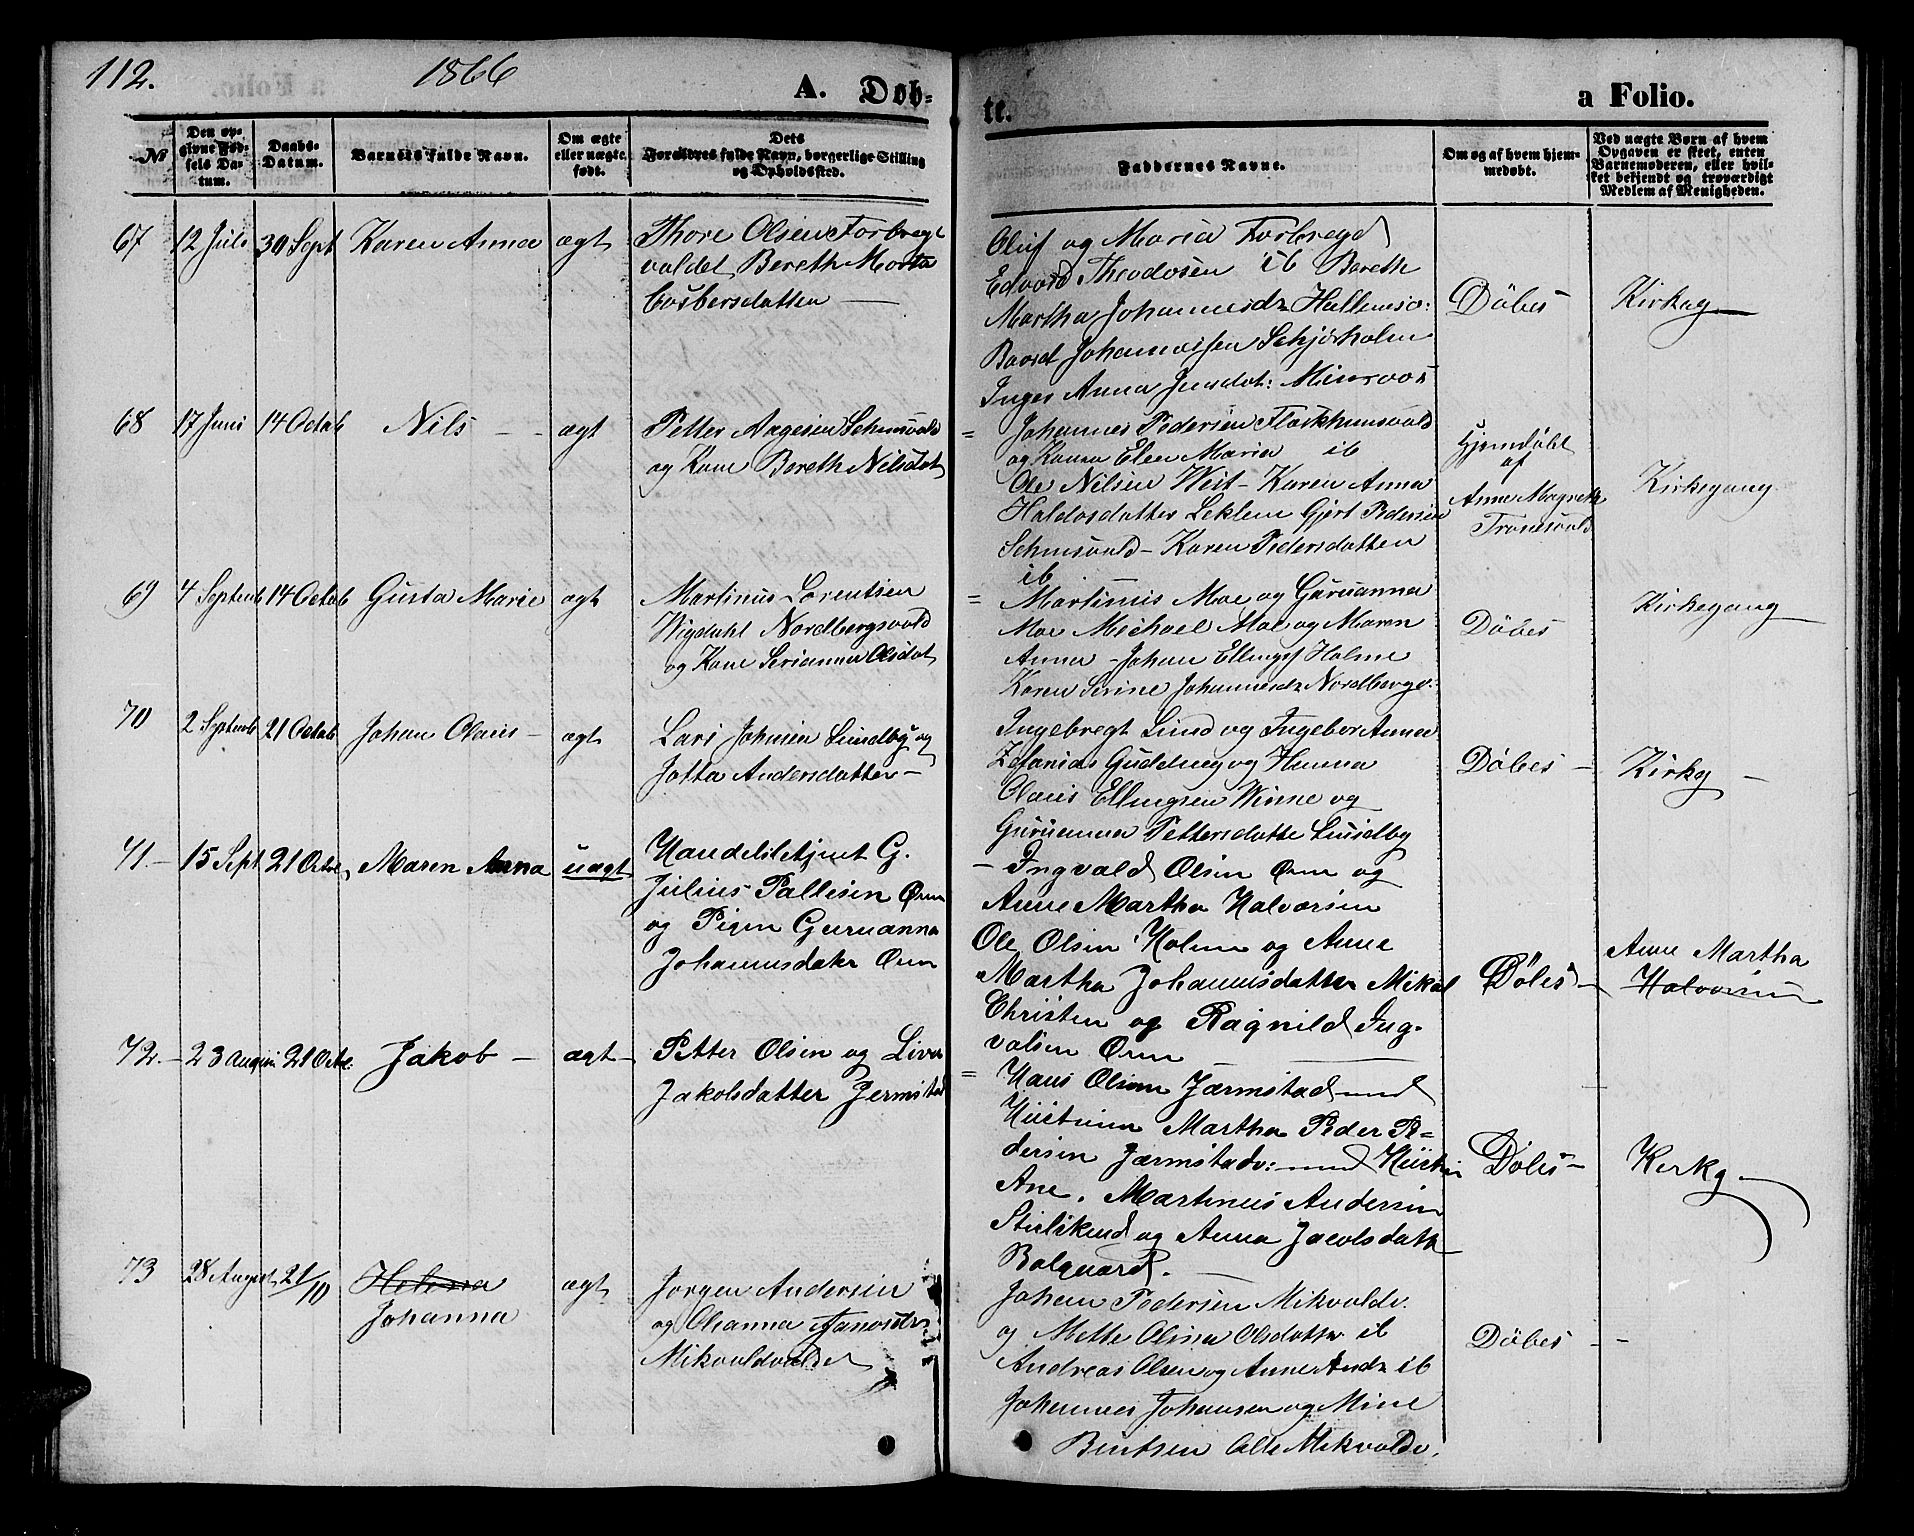 112.
1866
A. Døb-
te.
a Folio.
No
Den op-
givne Fød-
sels Da-
tum.
Daabs-
Datum.
Barnets fulde Navn.
Om ægte
eller uægte
født.
Dets
Forældres fulde Navn, borgerlige Stilling
og Opholdssted.
Faddernes Navne.
Om og af hvem hjem-
medøbt.
Ved uægte Børn af hvem
Opgaven er skeet, enten
Barnemoderen, eller hvil-
ket bekjendt og troværdigt
Medlem af Menigheden.
67
12 Juli
30 Sept
Karen Anna
ægt
Thore Olsen Forbregt
valdet Bereth Marta
Oluf og Maria Forbregd
Edvard Theodosen ib Bereth
Martha Johannesdr
Baard Johannessen Schjørholm
Inger Anna Jensdat:
Døbes
Kirkeg
68
17 Juni
14 Octob
Nils
ægt
Petter Aagesen
og Kone Bereth Nilsdat
= Johannes Pedersen
og Konen Elen Maria ib
Ole Nilsen Weit - Karen Anna
Haldosdatter Leklem Gjert Pedersen
Karen Pedersdatter
ib
Hjemdøbt
af
Anne Magreth
69
4 Septemb
14 Octob
Gusta Marie
ægt
Martinus Lorentsen
Wigdahl Nordbergsvald
og Kone Serianna Olsdat
= Martinus Moe og Guruanna
Moe Michael Moe og Maren
Anna - Johan Ellingsf Holme
Karen Serine Johannesdr Nordbergs
Døbes
Kirkegang
Kirkegang
70
2 Septemb
21 Octob
Johan Olaus
ægt
Lars Johnsen Lundby og
Jotta Andersdatter
Ingebregt Lund og Ingebor Anna
Zefanias Gudding og Hanna
Olaus Ellingsen Winne og
Guruanna Pettersdatter Lundby
Døbes
Kirkg
71.
15 Sept
21 Octbr
Maren Anna
uægt
G.
Julius Pallesen Ørm
og Pigen Guruanna
Johannesdatr Ørm
- Ingvald Olsen Ørm og
Anne Martha Halvorsen
Ole Olsen Holme og Anne
Martha Johannesdatter Mikal
Christen og Ragnild Ing-
valsen Ørm
Døbes
Anne Martha
Halvorsen
72.
23 August
21 Octbr.
Jakob
ægt
Petter Olsen og Liva
Jakobsdatter Jermstad
= Hans Olsen Jærmstad med
Hustruen Martha Peder Pe=
dersen Jærmstadv: med Hustru
Ane. Martinus Andersen
Stiklskind og Anna Jacobsdatr
Balgaard.
Døbes
Kerkg
73
28 August
21/10
Helena
Johanna
ægt
Jørgen Andersen
og Olianna
Mikvoldvalde
Johan Pedersen Mikvolde
og Mette Olina Olsdatter ib
Andreas Olsen og Anne Andr ib
Johannes Johansen og Mine
Bentsen Alle Mikvolde.
Døbes